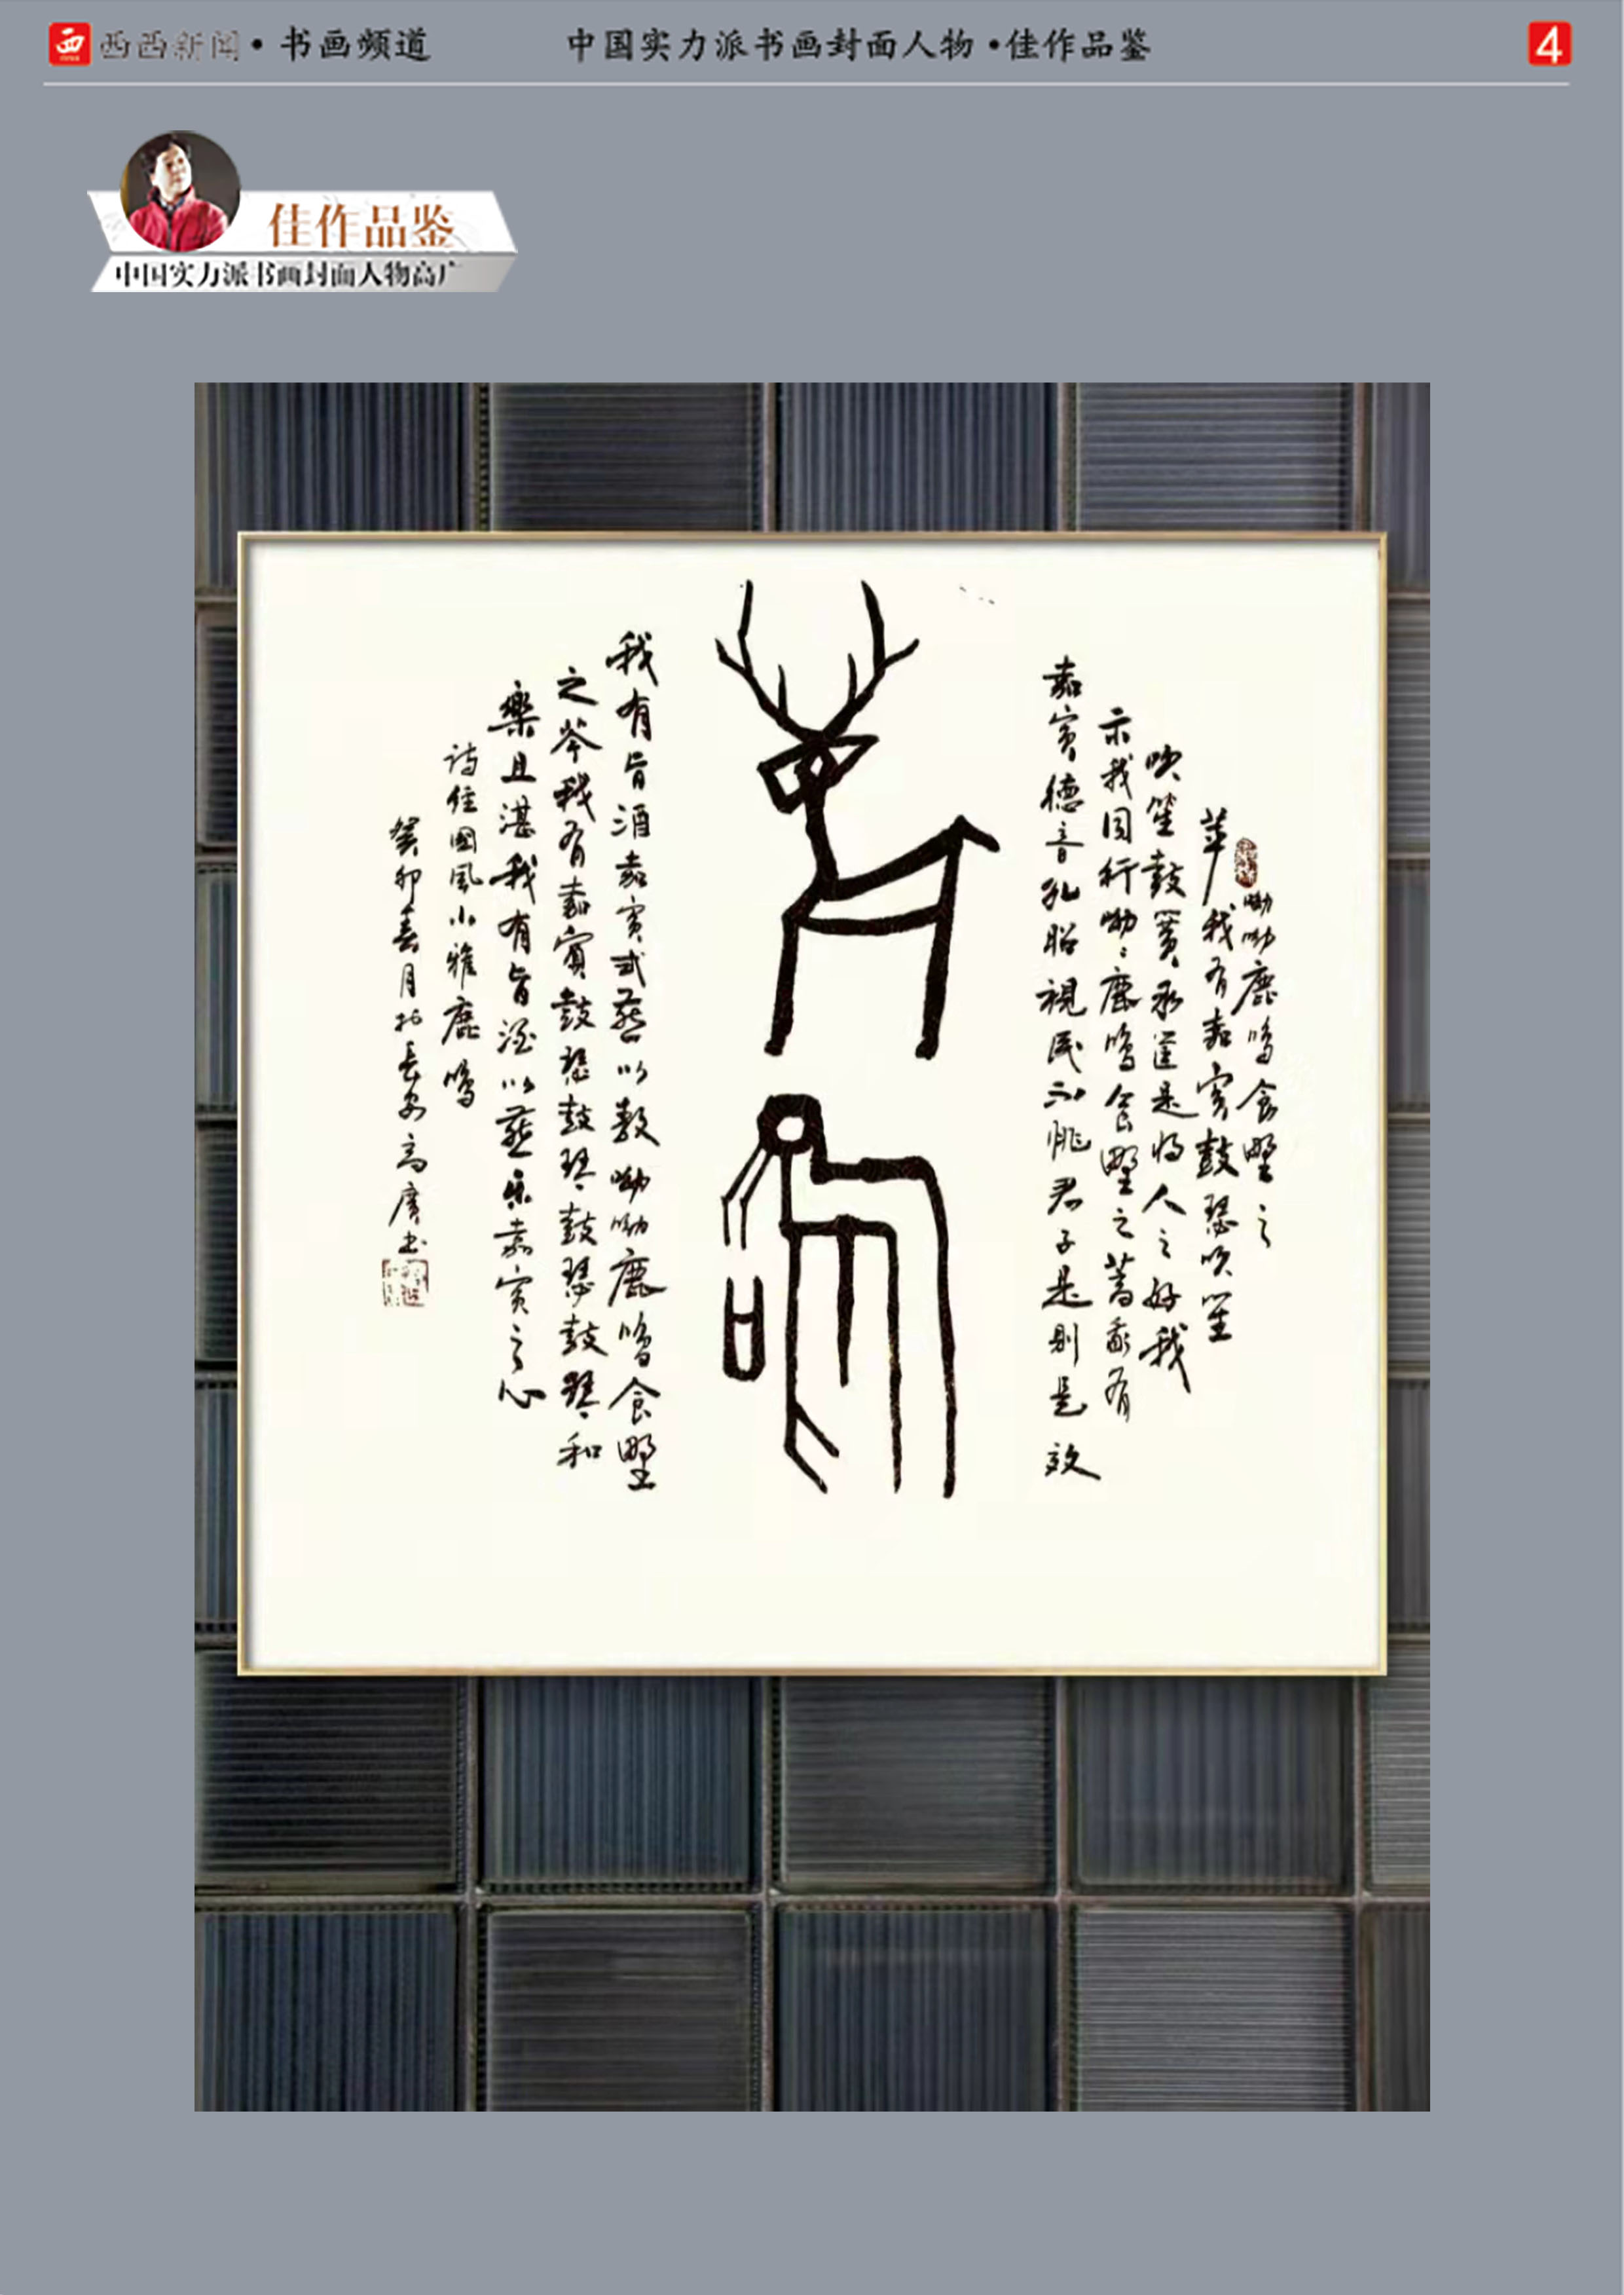 西 西西新闻 • 书画频道
中国实力派书画封面人物 •佳作品鉴
4
佳作品鉴
中国实力派书画封面人物高广
呦呦鹿鳴食野之
苹我有嘉賓鼓瑟吹笙
吹笙鼓簧承筐是將人之好我
示我周行呦々鹿鳴食野之蒿我有
嘉賓德音孔昭視民不恌君子是則是效
鹿鳴
我有旨酒嘉賓式燕以敖呦呦鹿鳴食野
之芩我有嘉賓鼓瑟鼓琴鼓瑟鼓琴和
樂且湛我有旨酒以燕樂嘉賓之心
詩經國風小雅鹿鳴
癸卯春月於長安高廣书